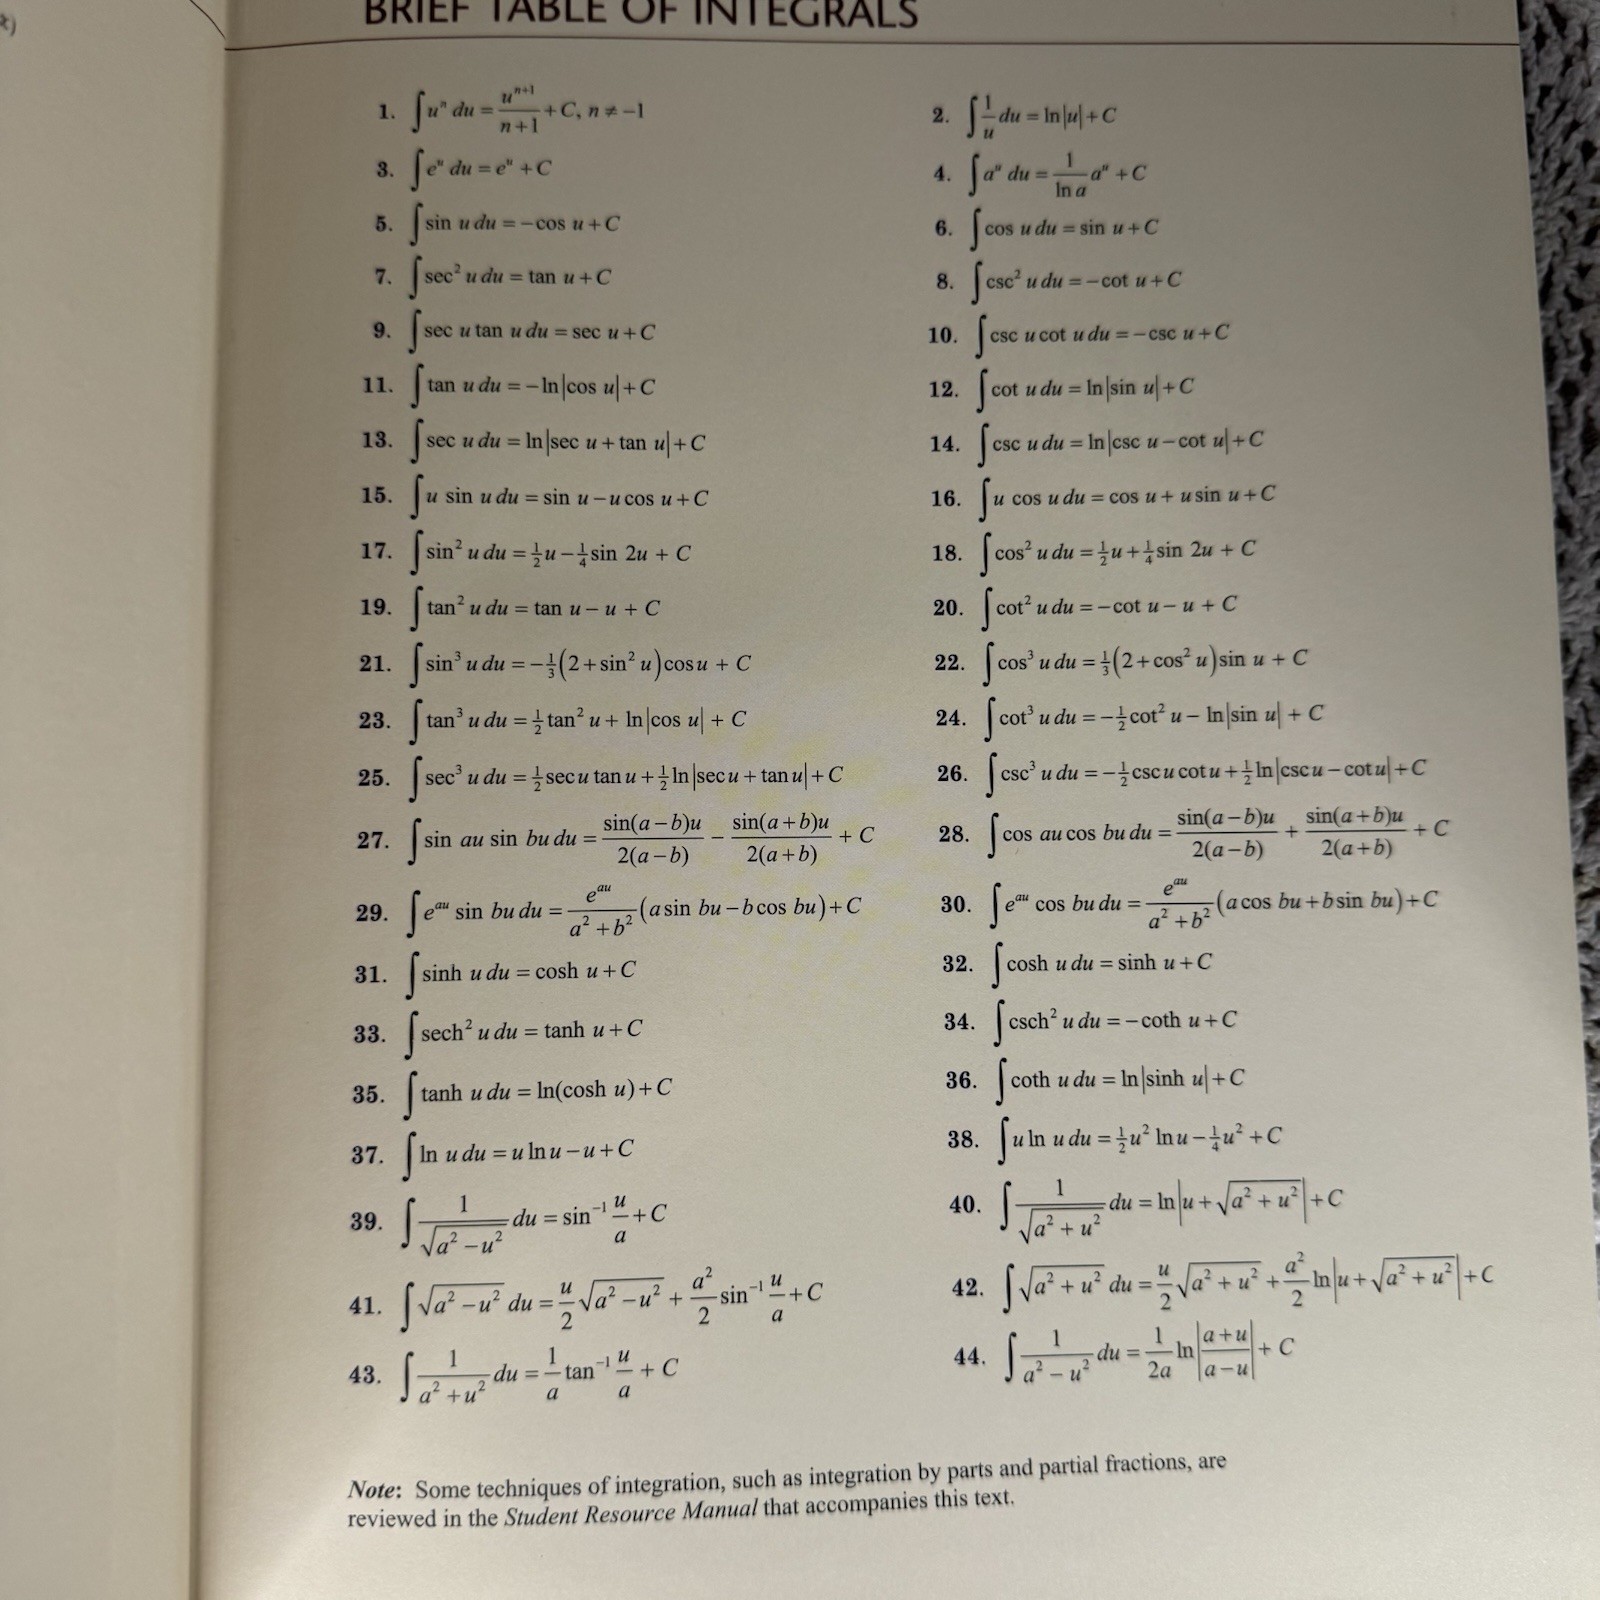 BRIEF TABLE OF INTEGRALS
1. ∫uⁿ du = uⁿ⁺¹/(n+1) + C, n ≠ −1
2. ∫1/u du = ln|u| + C
3. ∫eᵘ du = eᵘ + C
4. ∫aᵘ du = 1/(ln a) aᵘ + C
5. ∫sin u du = −cos u + C
6. ∫cos u du = sin u + C
7. ∫sec² u du = tan u + C
8. ∫csc² u du = −cot u + C
9. ∫sec u tan u du = sec u + C
10. ∫csc u cot u du = −csc u + C
11. ∫tan u du = −ln|cos u| + C
12. ∫cot u du = ln|sin u| + C
13. ∫sec u du = ln|sec u + tan u| + C
14. ∫csc u du = ln|csc u − cot u| + C
15. ∫u sin u du = sin u − u cos u + C
16. ∫u cos u du = cos u + u sin u + C
17. ∫sin² u du = ½u − ¼ sin 2u + C
18. ∫cos² u du = ½u + ¼ sin 2u + C
19. ∫tan² u du = tan u − u + C
20. ∫cot² u du = −cot u − u + C
21. ∫sin³ u du = −⅓(2 + sin² u)cos u + C
22. ∫cos³ u du = ⅓(2 + cos² u)sin u + C
23. ∫tan³ u du = ½ tan² u + ln|cos u| + C
24. ∫cot³ u du = −½ cot² u − ln|sin u| + C
25. ∫sec³ u du = ½ sec u tan u + ½ ln|sec u + tan u| + C
26. ∫csc³ u du = −½ csc u cot u + ½ ln|csc u − cot u| + C
27. ∫sin au sin bu du = sin(a−b)u/2(a−b) − sin(a+b)u/2(a+b) + C
28. ∫cos au cos bu du = sin(a−b)u/2(a−b) + sin(a+b)u/2(a+b) + C
29. ∫eᵃᵘ sin bu du = eᵃᵘ/(a² + b²) (a sin bu − b cos bu) + C
30. ∫eᵃᵘ cos bu du = eᵃᵘ/(a² + b²) (a cos bu + b sin bu) + C
31. ∫sinh u du = cosh u + C
32. ∫cosh u du = sinh u + C
33. ∫sech² u du = tanh u + C
34. ∫csch² u du = −coth u + C
35. ∫tanh u du = ln(cosh u) + C
36. ∫coth u du = ln|sinh u| + C
37. ∫ln u du = u ln u − u + C
38. ∫u ln u du = ½u² ln u − ¼u² + C
39. ∫1/√(a² − u²) du = sin⁻¹ u/a + C
40. ∫1/√(a² + u²) du = ln|u + √(a² + u²)| + C
41. ∫√(a² − u²) du = u/2 √(a² − u²) + a²/2 sin⁻¹ u/a + C
42. ∫√(a² + u²) du = u/2 √(a² + u²) + a²/2 ln|u + √(a² + u²)| + C
43. ∫1/(a² + u²) du = 1/a tan⁻¹ u/a + C
44. ∫1/(a² − u²) du = 1/2a ln|(a + u)/(a − u)| + C
Note: Some techniques of integration, such as integration by parts and partial fractions, are
reviewed in the Student Resource Manual that accompanies this text.